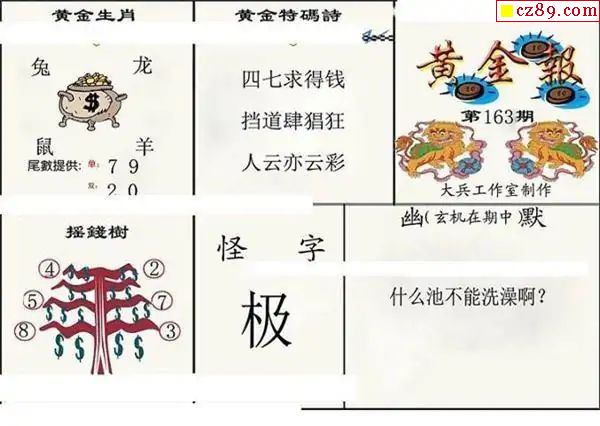 cz89.com
黄金生肖
兔 龙
$
鼠 羊
尾數提供: 单: 7 9
双: 2 0
黄金特碼詩
四七求得钱
挡道肆猖狂
人云亦云彩
黄金報
第163期
大兵工作室制作
摇錢樹
④ ②
⑤ ⑦
⑧ ③
$ $ $ $ $ $ $ $
怪 字
极
幽(玄机在期中)默
什么池不能洗澡啊？